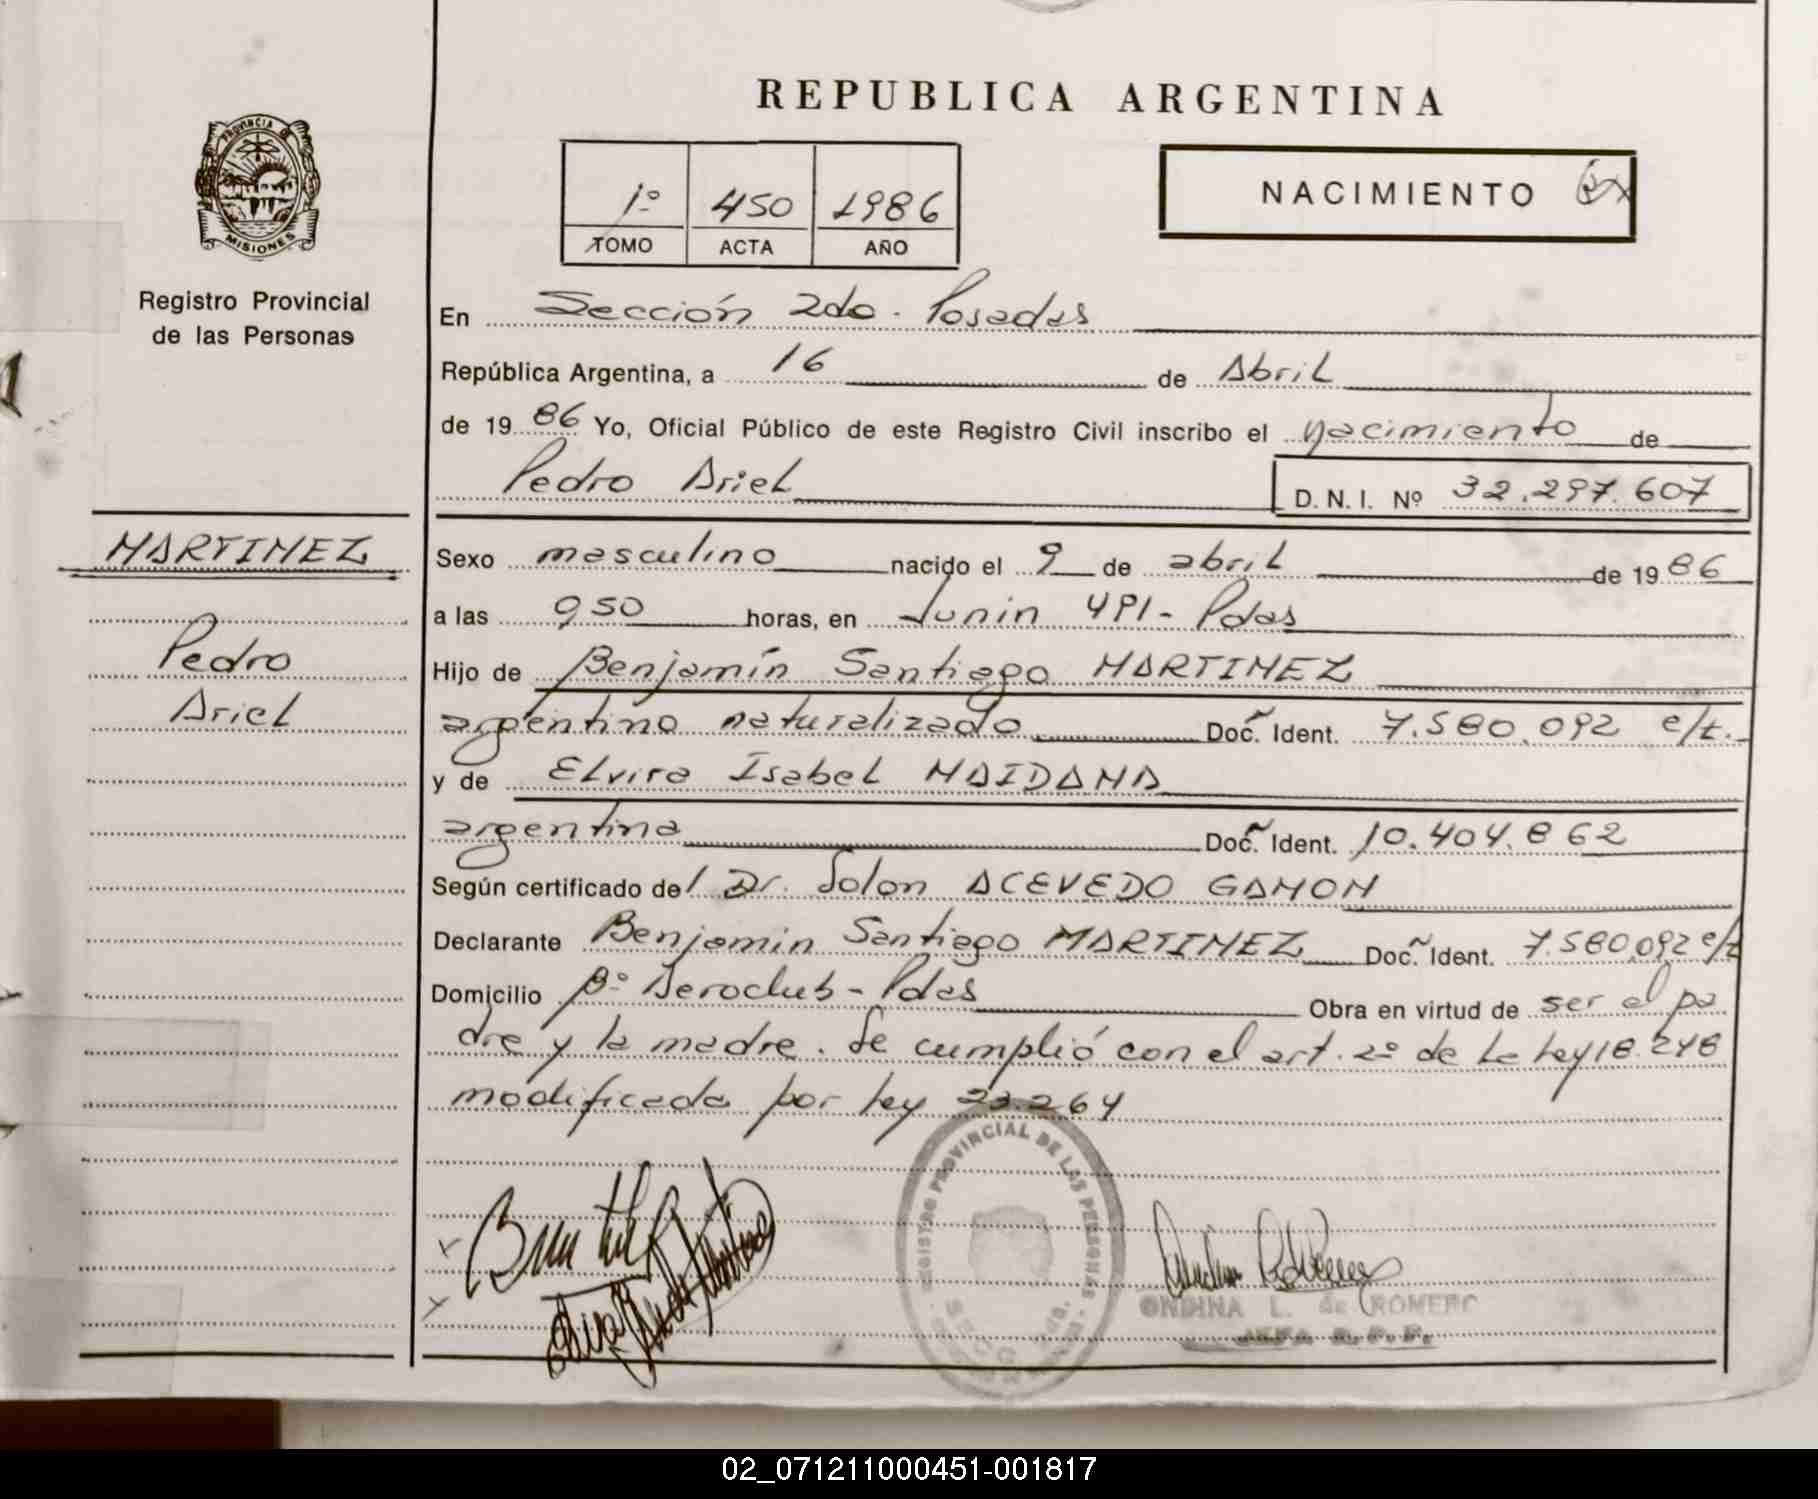 REPUBLICA ARGENTINA
PROVINCIA DE
MISIONES
Registro Provincial
de las Personas
1º 450 1986
TOMO ACTA AÑO
NACIMIENTO
En Sección 2do. Posadas
República Argentina, a 16 de Abril
de 1986 Yo, Oficial Público de este Registro Civil inscribo el nacimiento de
Pedro Ariel D.N.I. Nº 32.297.607
MARTINEZ
Pedro
Ariel
Sexo masculino nacido el 9 de abril de 1986
a las 950 horas, en Junin 491 - Pdas
Hijo de Benjamín Santiago MARTINEZ
argentino naturalizado Doc. Ident. 7.580.092 c/t.
y de Elvira Isabel MAIDANA
argentina Doc. Ident. 10.404.862
Según certificado del Dr. Solon ACEVEDO GAMON
Declarante Benjamin Santiago MARTINEZ Doc. Ident. 7.580.092 c/t
Domicilio Bº Aeroclub - Pdas Obra en virtud de ser el pa
dre y la madre. Se cumplió con el art. 2º de la Ley 18.248
modificada por ley 23.264
REGISTRO PROVINCIAL DE LAS PERSONAS
ONDINA L. de ROMERO
JEFA
02_071211000451-001817